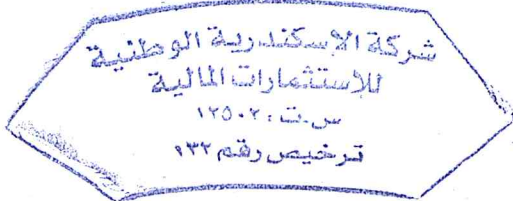 شركة الإسكندرية الوطنية
للاستثمارات المالية
س.ت: ١٢٥٠٢
ترخيص رقم ٩٣٢